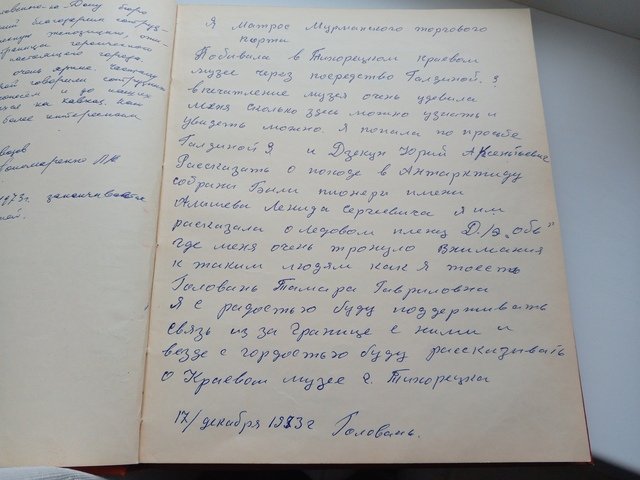 сотруд-
героического
города.
очень ярким.
говорили сотрудники
и до наших
на кавказ. Как
более интересным
Пономаренко
1973г. закончивается
Я Матрос Мурманского торгового
порта
Побывала в Тихорецком краевом
музее через посредство Галдиной.
впечатление музея очень удевила
меня сколько здесь можно узнать и
увидеть можно. Я попала по прозбе
Галдиной Я и Дзекун Юрий Аксентьевич
Рассказать о походе в Антарктиду
собраны были пионеры имени
Алышева Леонида Сергиевича я им
рассказала о ледовом плену Д/э „Обь"
где меня очень тронуло внимания
к таким людям как я тоесть
Головань Тамара Гавриловна
Я с радостью буду поддерживать
связь из за границе с ними и
везде с гордостью буду рассказывать
о Краевом музее г. Тихорецка
17/декабря 1973г Головань.